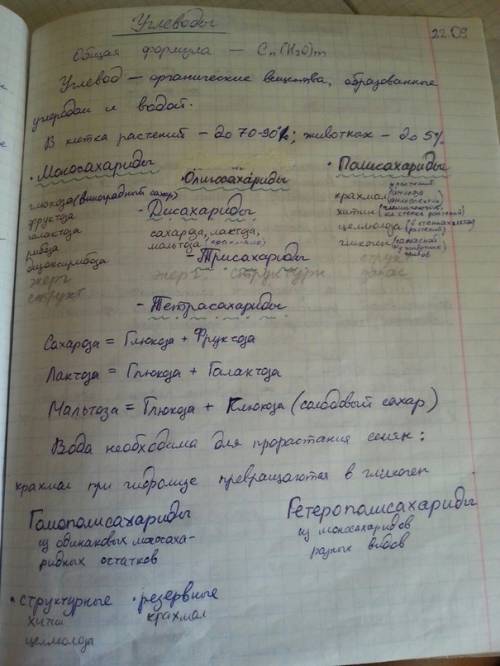 Углеводы
22.09
Общая формула — Cn(H2O)m
Углевод — органические вещества, образованные
углеродом и водой.
В клетка растений — до 70-90%; животных — до 5%
· Моносахариды
глюкоза (виноградный сахар)
фруктоза
галактоза
рибоза
дизоксирибоза
энерг
структ
Олигосахариды
- Дисахариды
сахароза, лактоза,
мальтоза
- Трисахариды
энерг структурн
- Тетрасахариды
· Полисахариды
крахмал
хитин
целлюлоза
гликоген
струк
запас
Сахароза = Глюкоза + Фруктоза
Лактоза = Глюкоза + Галактоза
Мальтоза = Глюкоза + Глюкоза (солодовый сахар)
Вода необходима для прорастания семян:
крахмал при гидролизе превращаются в гликоген
Гомополисахариды
из одинаковых моносаха-
ридных остатков
Гетерополисахариды
из моносахаридов
разных видов
· структурные · резервные
хитин крахмал
целлюлоза